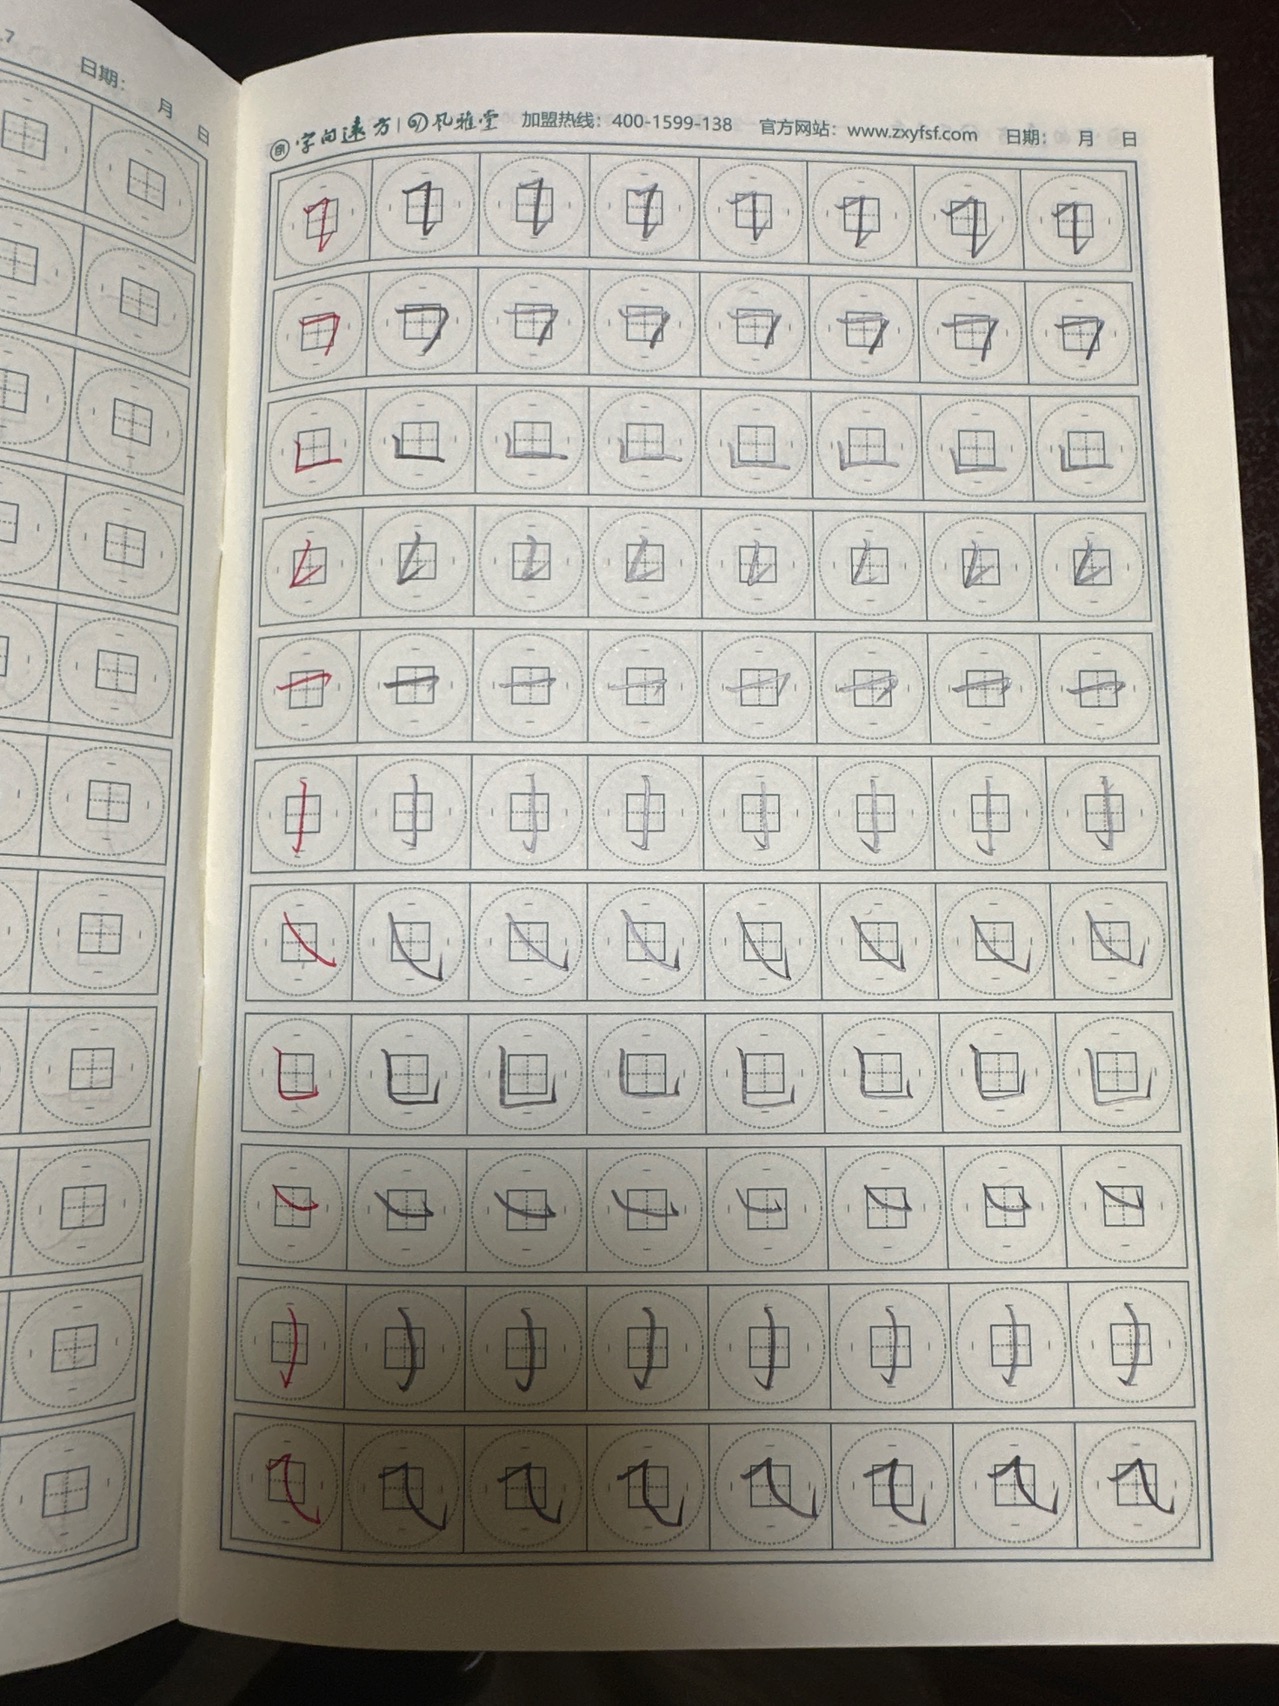 7
日期： 月 日
字向遠方 | 风雅堂 加盟热线：400-1599-138 官方网站：www.zxyfsf.com 日期： 月 日